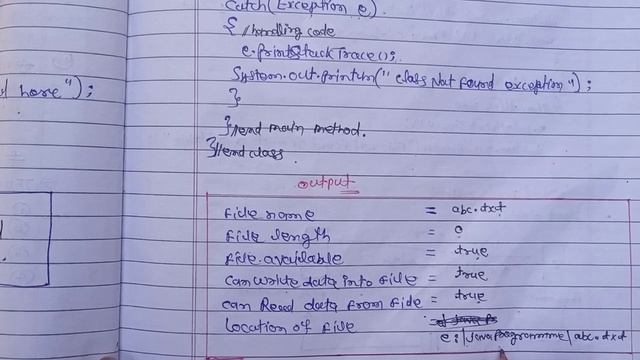 catch(Exception e)
{ //handling code
e.printStackTrace();
System.out.println("class Not found exception");
}
}//end main method.
}//end class.
d here");
output
File name = abc.txt
File length = 0
File available = true
Can write data into File = true
can Read data from File = true
Location of File
e:\Javaprogramme\abc.txt